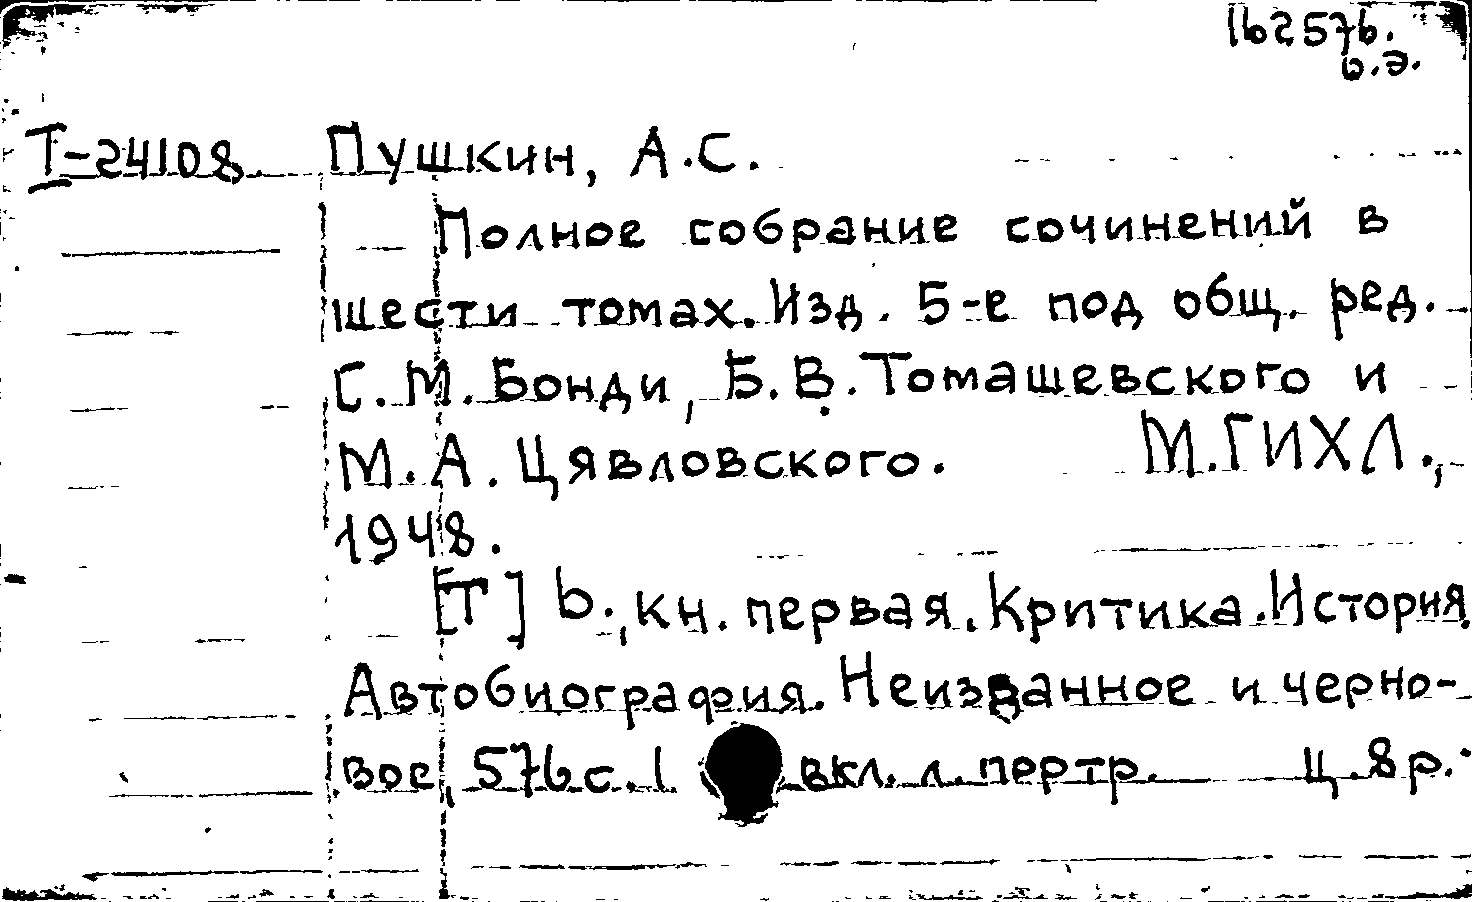 162576.
о.э.
Т-24108. Пушкин, А.С.
Полное собрание сочинений в
шести томах. Изд. 5-е под общ. ред.
С.М. Бонди, Б.В. Томашевского и
М.А. Цявловского. М. ГИХЛ.,
1948.
[Т] 6., кн. первая. Критика. История.
Автобиография. Неизванное и черно-
вое, 576 с. 1 вкл. л. портр. Ц. 8 р.